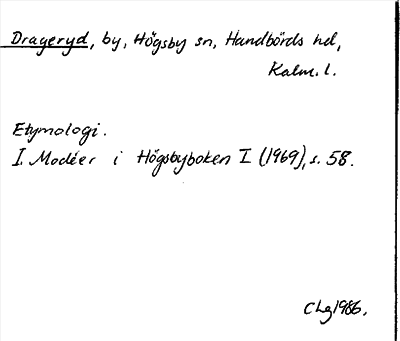 Drageryd, by, Högsby sn, Handbörds hd,
Kalm. l.
Etymologi.
I. Modéer i Högsbyboken I (1969), s. 58.
CLg 1986.